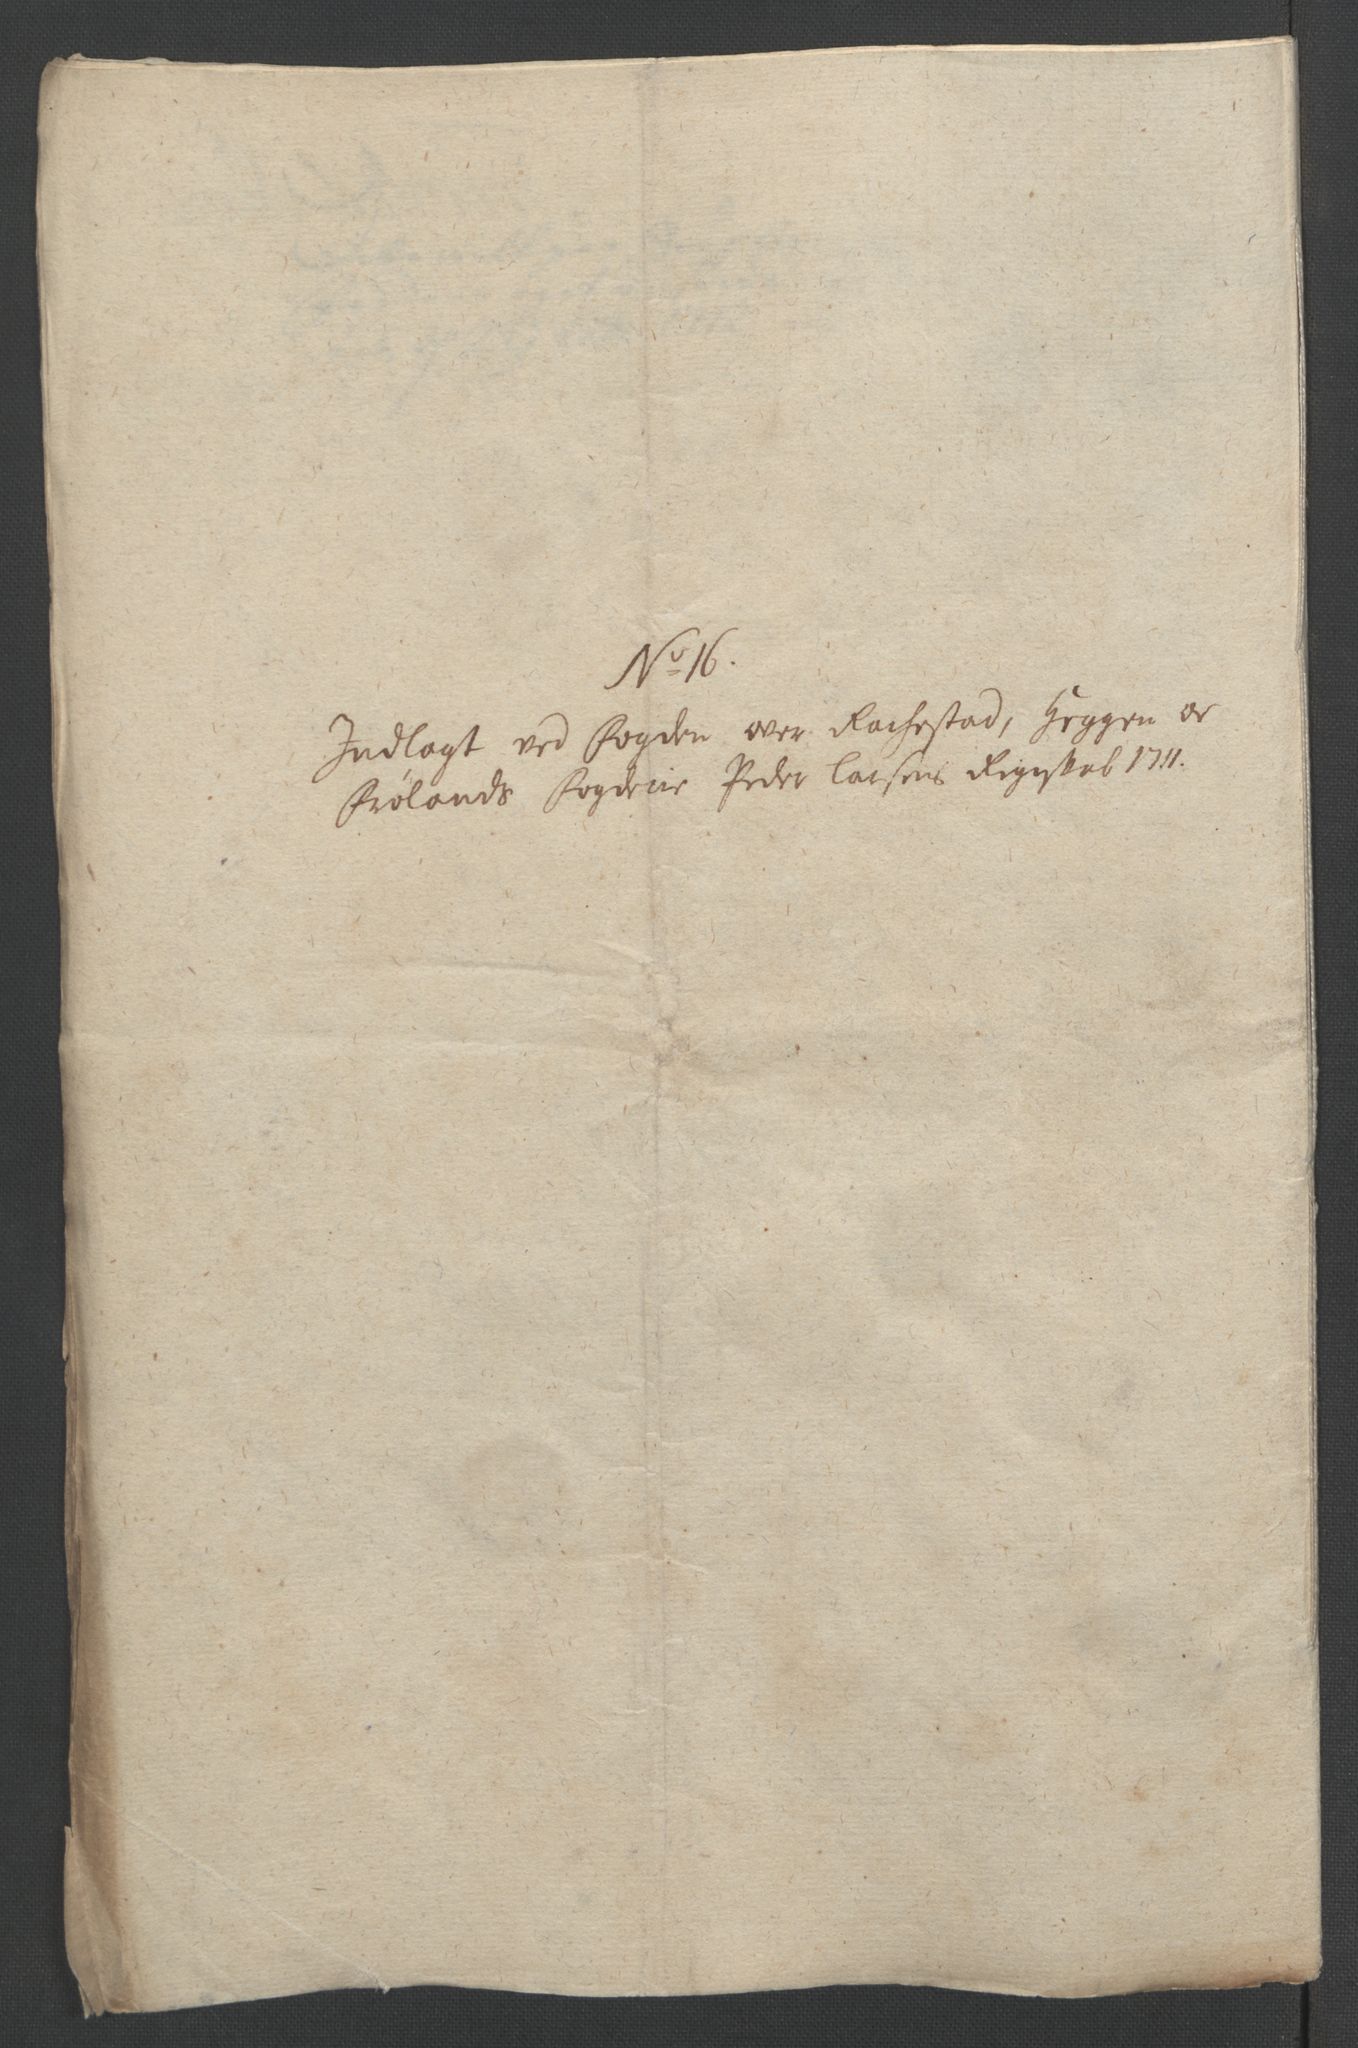 No 16.
Indlagt ved Fogden over Rachestad, Heggen oc
Frølands Fogderie Peder Larsens Regnskab 1711.